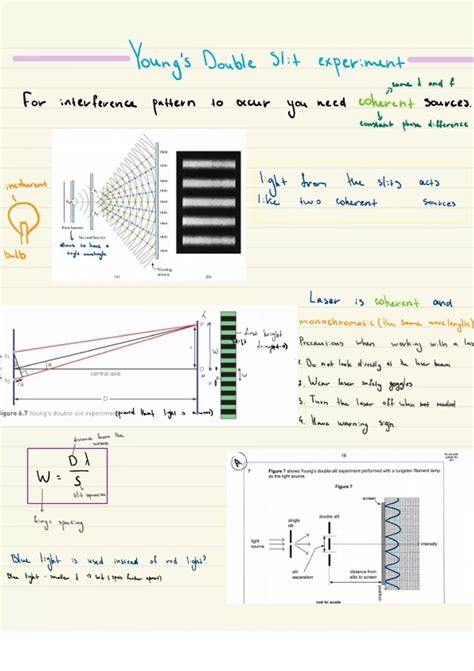 Young's Double Slit experiment
same λ and f
For interference pattern to occur you need coherent sources.
constant phase difference
incoherent
bulb
max
min
First barrier
Second barrier
Viewing screen
allows to have a single wavelength
(a)
(b)
light from the slits acts
like two coherent sources
Laser is coherent and
monochromatic (the same wavelength)
Precautions when working with a
1. Do not look directly at the laser beam
2. Wear laser safety goggles
3. Turn the laser off when not needed
4. Have warning sign.
P
first bright
S₁
central axis
W
D
figure 6.7 Young's double slit experiment
(proved that light is a wave)
distance from the screen
W = Dλ
s
slit separation
fringe spacing
Blue light is used instead of red light?
Blue light - smaller λ
A
18
7
Figure 7 shows Young's double-slit experiment performed with a tungsten filament lamp
as the light source.
Figure 7
screen
double slit
single
slit
light
source
intensity
slit
separation
distance from
slits to screen
not to scale